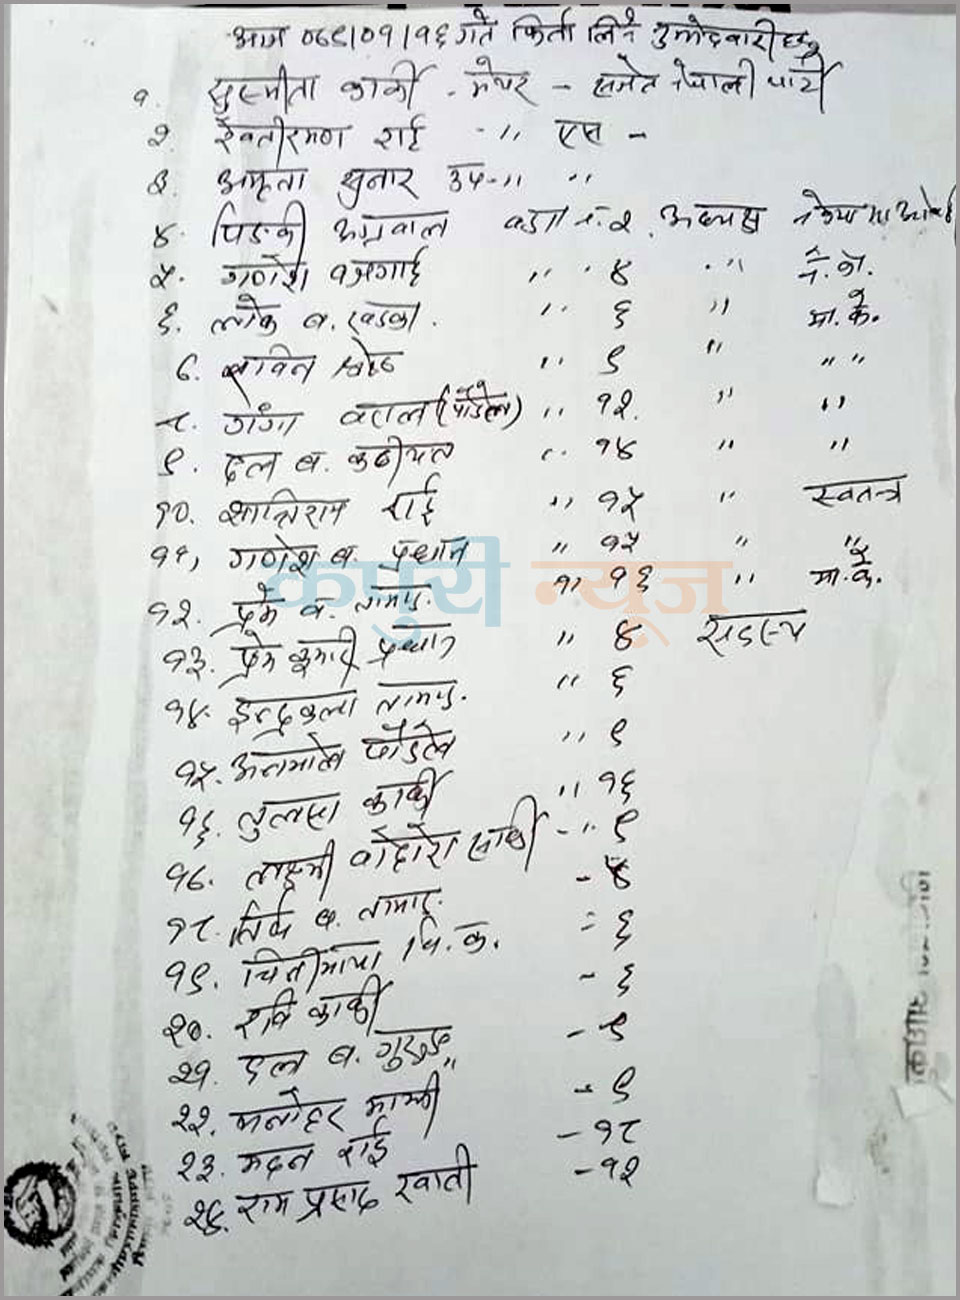 आज ०७९।०१।१६ गते फिर्ता लिने उम्मेदवारी हरू
१. सुस्मीता कार्की - मेयर - समेत नेपाली पार्टी
२. रेवतीरमण राई - " एस -
३. अमृता सुनार उप-" "
४. पिङकी अग्रवाल वडा नं. २ अध्यक्ष नेकपा मा
५. गणेश बजगाई " " ४ " ने. का.
६. लोक ब. खडका. " ६ " मा. के.
७. सावित्र श्रेष्ठ " ९ " " "
८. गंगा बराल (पौडेल) " १२. " "
९. दल ब. " १४ " "
१०. शान्तिराम राई " १५ " स्वतन्त्र
११, गणेश ब. प्रधान " १५ " "
१२. प्रेम ब. तामाङ. " १६ " मा. के.
कपुरी न्यूज
१३. प्रेम कुमारी प्रधान " ४ सदस्य
१४. इन्द्रकला तामाङ. " ६
१५. पौडेल " ९
१६. तुलसा कार्की " १६
१७. लक्ष्मी सार्की - " ९
१८. तिर्थ ब. तामाङ. - ४
१९. चित्रमाया वि. क. - ६
२०. रवि कार्की - ६
२१. दल ब. गुरुङ - ९
२२. मनोहर माझी - ९
२३. मदन राई - १८
२४. राम प्रसाद खाती - १२